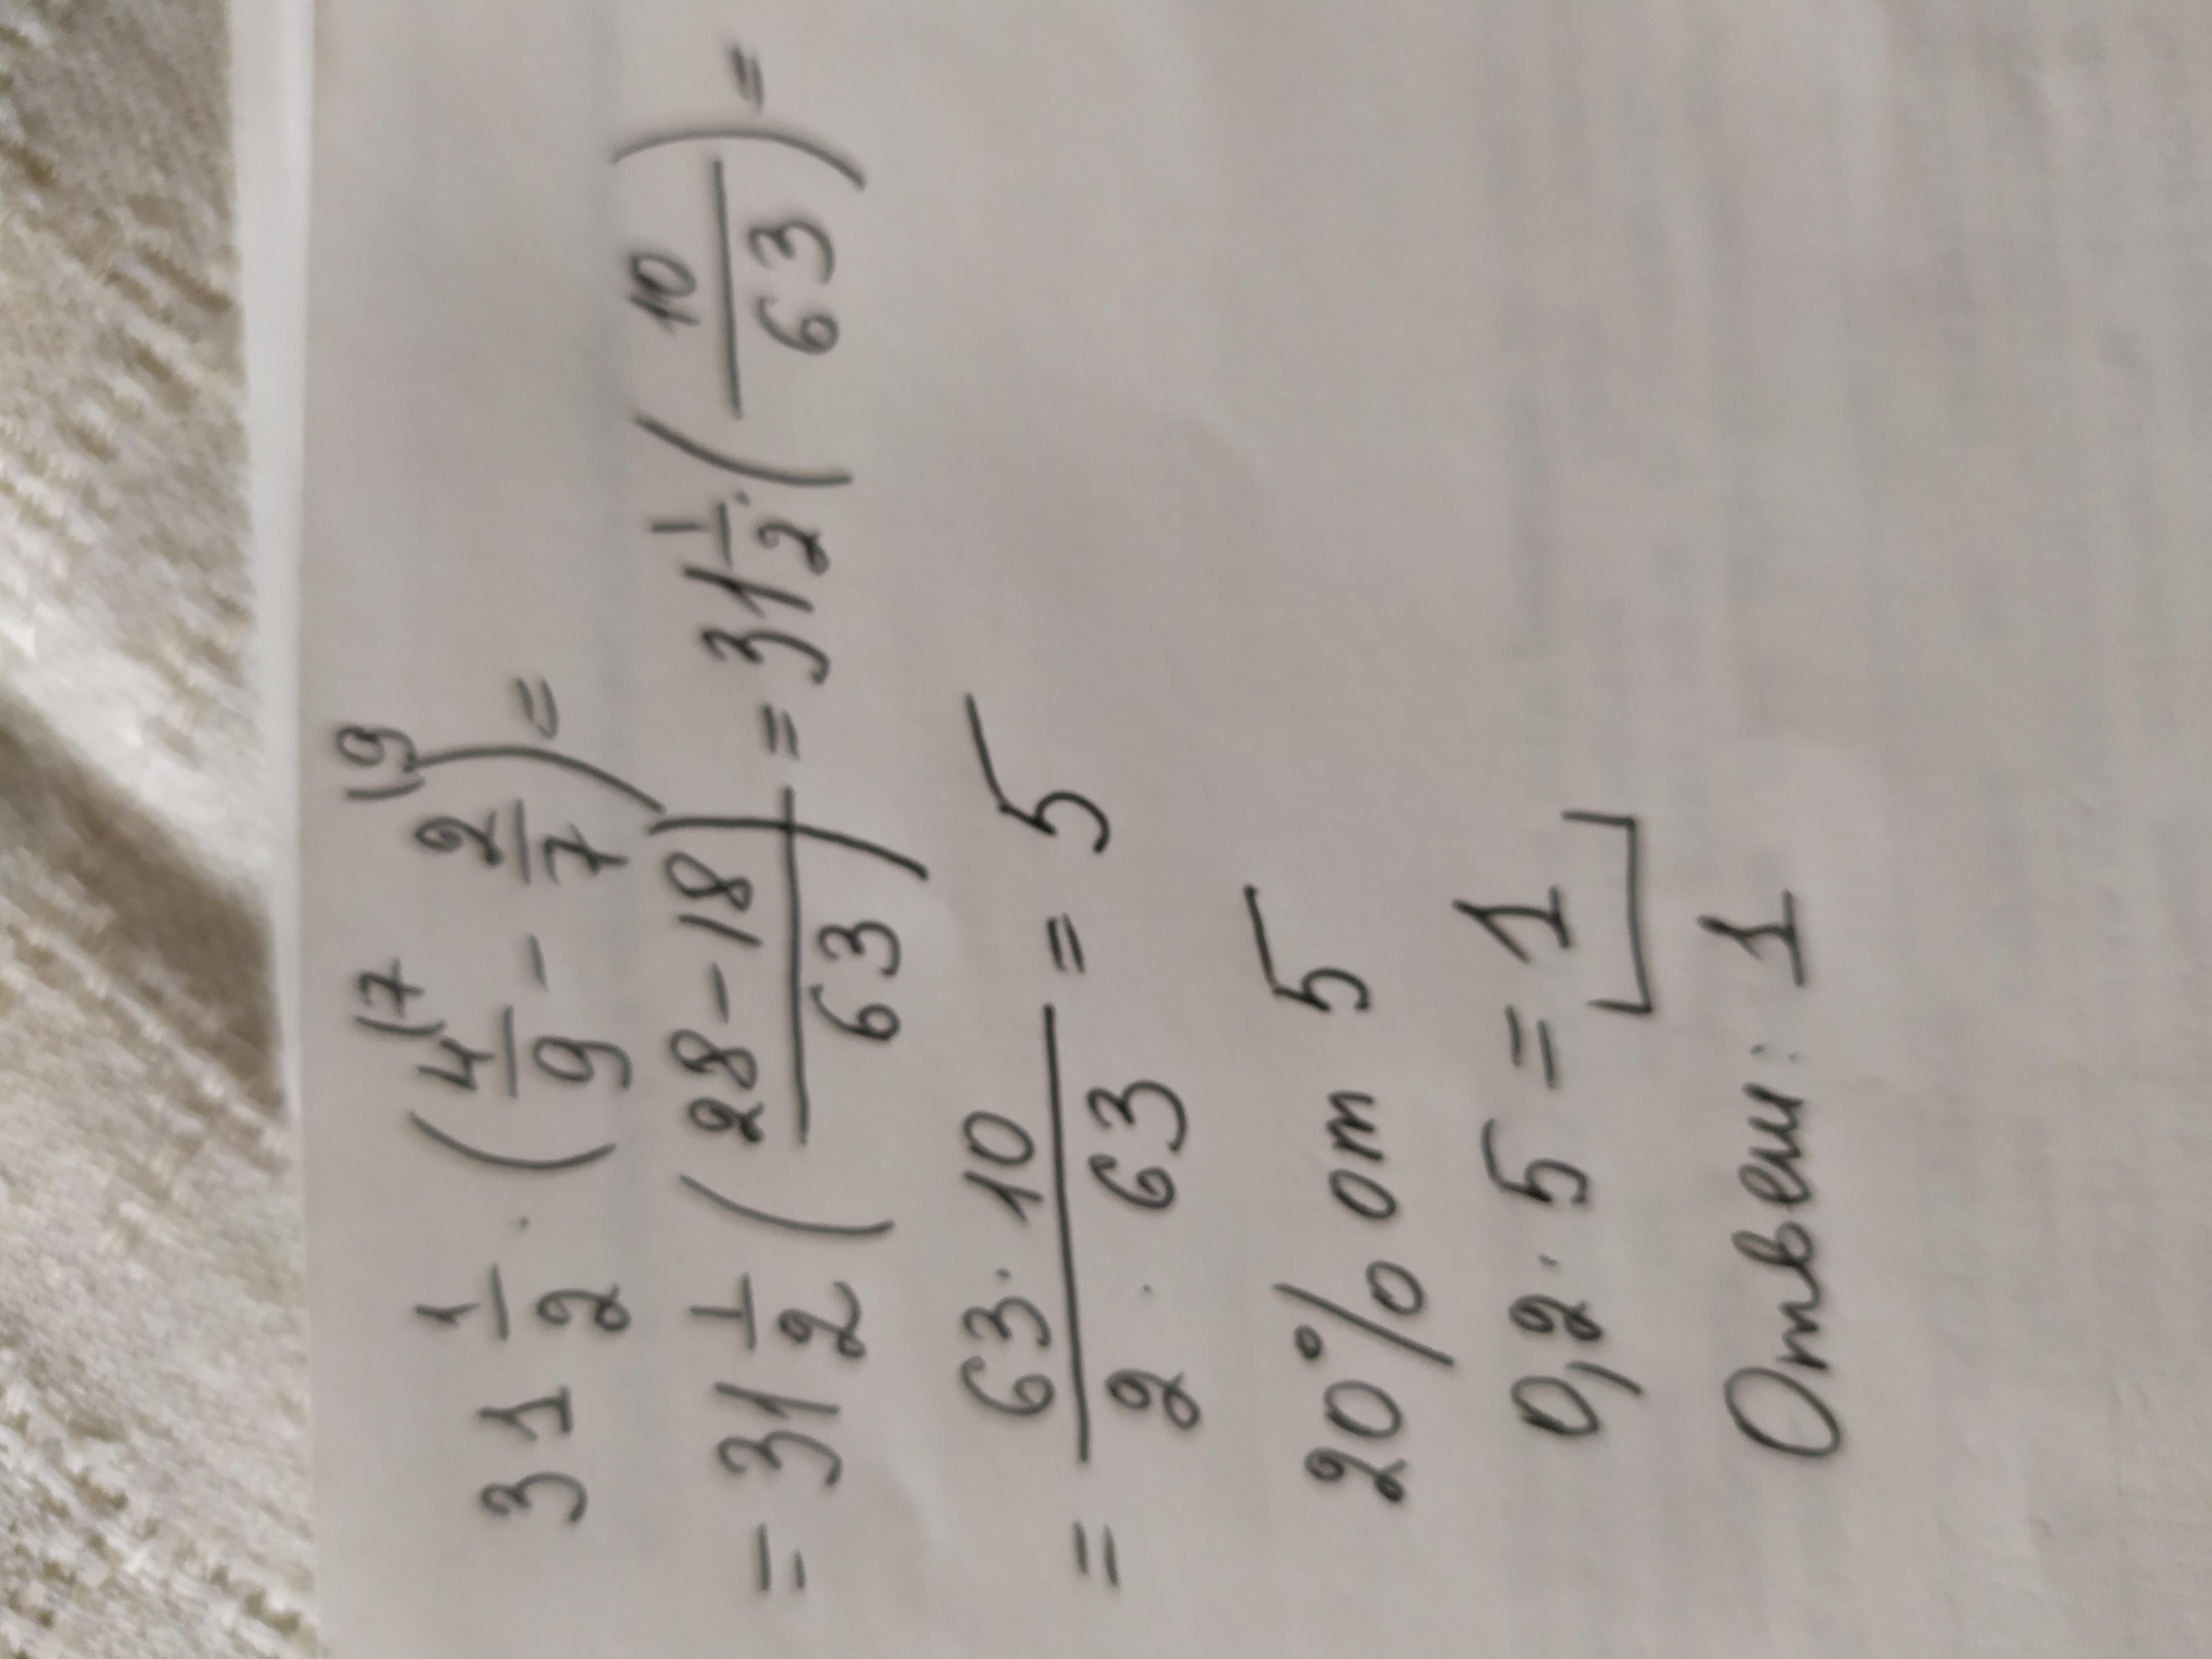 31 1/2 · (4/9 (7 - 2/7 (9) =
= 31 1/2 ((28-18)/63) = 31 1/2 · (10/63) =
= (63 · 10)/(2 · 63) = 5
20% от 5
0,2 · 5 = 1
Ответ: 1